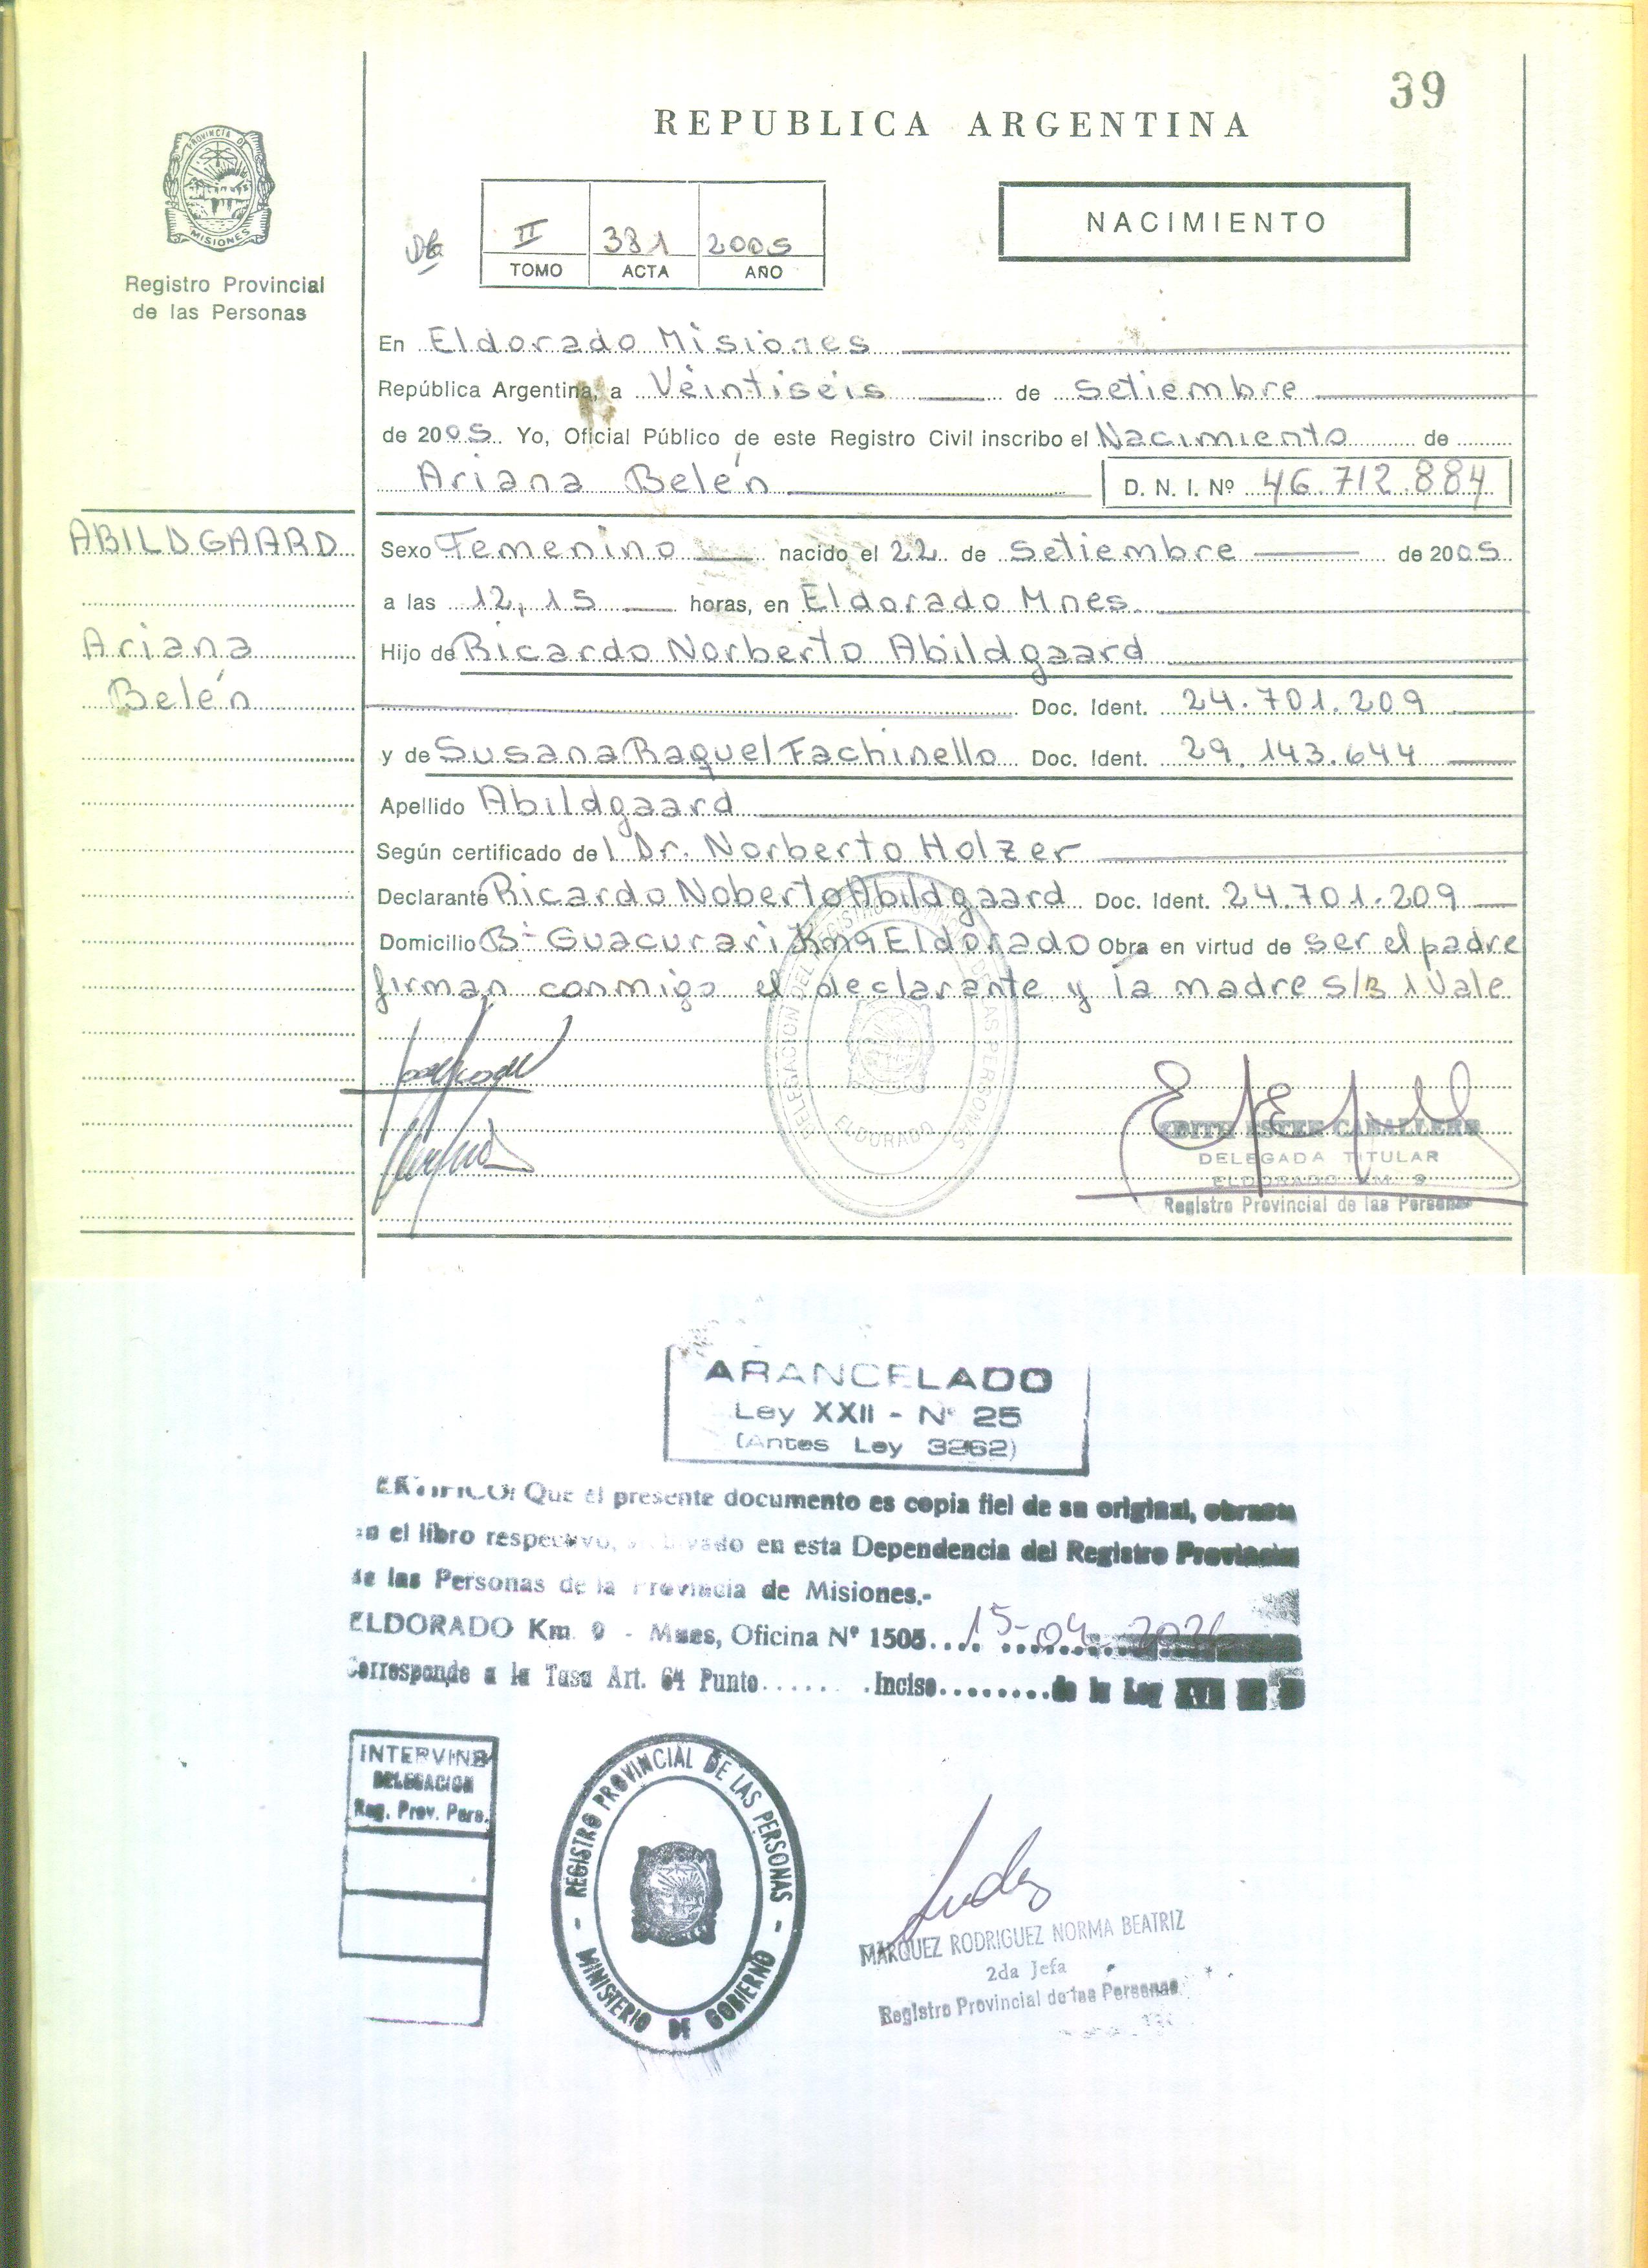 39
REPUBLICA ARGENTINA
PROVINCIA DE
MISIONES
Registro Provincial
de las Personas
II 381 2005
TOMO ACTA AÑO
NACIMIENTO
En Eldorado Misiones
República Argentina, a Veintiseis de setiembre
de 2005 Yo, Oficial Público de este Registro Civil inscribo el Nacimiento de
Ariana Belén D. N. I. Nº 46.712.884
ABILDGAARD
Ariana
Belén
Sexo Femenino nacido el 22 de setiembre de 2005
a las 12,15 horas, en Eldorado Mnes.
Hijo de Ricardo Norberto Abildgaard
Doc. Ident. 24.701.209
y de Susana Raquel Fachinello Doc. Ident. 29.143.644
Apellido Abildgaard
Según certificado del Dr. Norberto Holzer
Declarante Ricardo Noberto Abildgaard Doc. Ident. 24.701.209
Domicilio Bº Guacurari Km9 Eldorado Obra en virtud de ser el padre
firman conmigo el declarante y la madre S/B 1 Vale
DELEGACION DEL REGISTRO DE LAS PERSONAS
ELDORADO
EDITH ESTER CABALLERO
DELEGADA TITULAR
ELDORADO KM. 9
Registro Provincial de las Personas
ARANCELADO
Ley XXII - Nº 25
(Antes Ley 3262)
Que el presente documento es copia fiel de su original,
el libro respectivo, en esta Dependencia del Registro Provincial
de las Personas de la Provincia de Misiones.-
ELDORADO Km 9 - Mnes, Oficina Nº 1505.... 15-04-
Corresponde a la Tasa Art. 64 Punto...... .Inciso.........de la Ley XVII
INTERVINE
DELEGACION
Reg. Prov. Pers.
- REGISTRO PROVINCIAL DE LAS PERSONAS -
MINISTERIO DE GOBIERNO
MARQUEZ RODRIGUEZ NORMA BEATRIZ
2da Jefa
Registro Provincial de las Personas